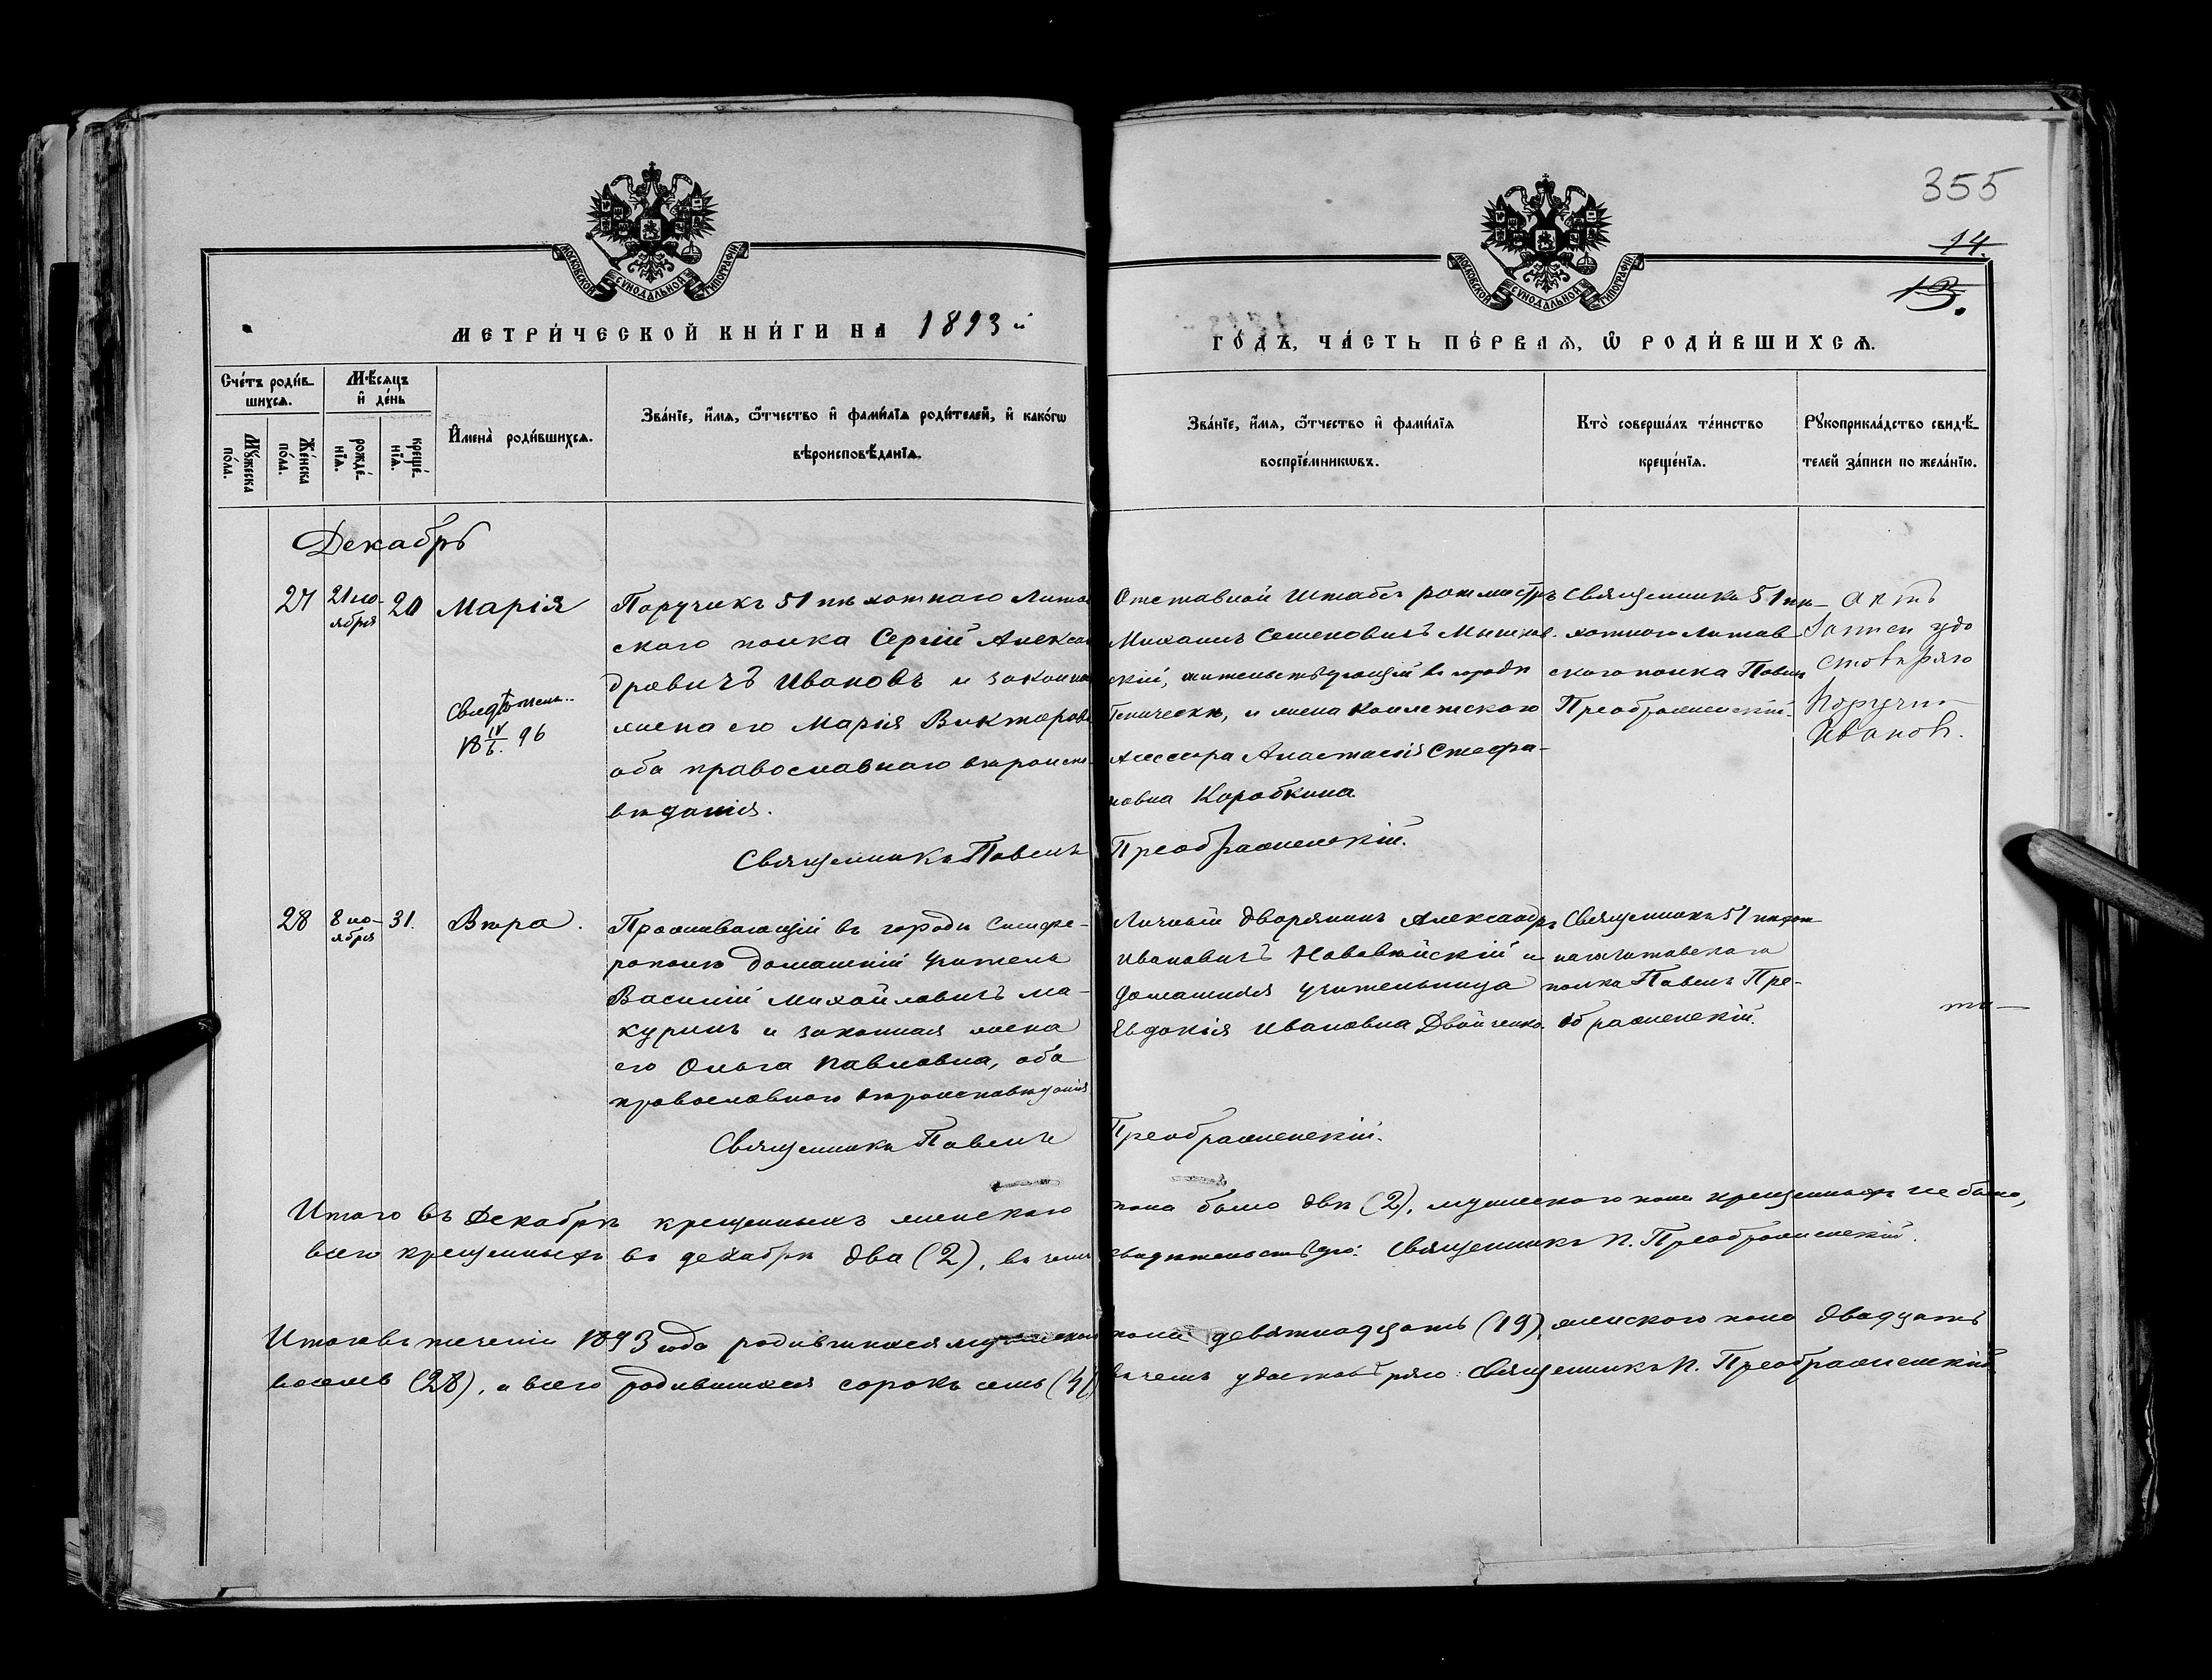 355
14.
13.
МОСКОВСКОЙ СѴНОДАЛЬНОЙ ТИПОГРАФІИ
МОСКОВСКОЙ СѴНОДАЛЬНОЙ ТИПОГРАФІИ
МЕТРИ́ЧЕСКОЙ КНИ́ГИ НА 1893 й
ГО́ДЪ, ЧА́СТЬ ПЕ́РВАѦ, Ѽ РОДИ́ВШИХСѦ.
Сче́тъ роди́в-
шихсѧ.
Мꙋ́жеска по́ла.
Же́нска по́ла.
Мѣ́сѧцъ и҆ де́нь
рожде́-нїѧ.
креще́-нїѧ.
И҆мена̀ роди́вшихсѧ.
Зва́нїе, и҆́мѧ, ѻ҆́тчество и҆ фами́лїѧ роди́телей, и҆ како́гѡ
вѣроисповѣ́данїѧ.
Зва́нїе, и҆́мѧ, ѻ҆́тчество и҆ фами́лїѧ
воспрїе́мникѡвъ.
Кто̀ соверша́лъ та́инство
креще́нїѧ.
Рꙋкоприкла́дство свидѣ́-
телей за́писи по жела́нїю.
Декабрь
27 21 но-
ября 20 Марія
Свидѣтель..
18 IV/6. 96
Поручикъ 51 пѣхотнаго Литов
скаго полка Сергій Алексан
дровичъ Ивановъ и законная
жена его Марія Викторовна
оба православнаго вѣроиспо
вѣданія.
Священникъ Павелъ Преображенскій.
Отставной Штабсъ ротмистръ
Михаилъ Семеновичъ
скій, жительствующій въ городѣ
Геническѣ, и жена Коллежскаго
Ассесора Анастасія Стефа-
новна Коробкина
Священникъ 51 пѣ-
хотнаго Литов
скаго полка Павелъ
Преображенскій.
Актъ
записи удо
стовѣряю
Поручикъ
Ивановъ.
28 8 но-
ября 31. Вѣра.
Проживающій въ городѣ Симфе-
рополѣ домашній учитель
Василій Михайловичъ Ма-
куринъ и законная жена
его Ольга Павловна, оба
православнаго вѣроисповѣданія
Священникъ Павелъ Преображенскій.
Личный дворянинъ Александръ
Ивановичъ Нововѣйскій и
домашняя учительница
Евдокія Ивановна Двойченко.
Священникъ 51 пѣхот
наго Литовскаго
полка Павелъ Пре-
ображенскій.
Итого въ Декабрѣ крещенныхъ женскаго пола было двѣ (2), мужескаго пола крещенныхъ не было,
всего крещенныхъ въ декабрѣ два (2), въ чемъ свидѣтельствую: Священникъ П. Преображенскій.
Итого въ теченіи 1893 года родившихся мужескаго пола девятнадцать (19), женскаго пола двадцать
восемь (28), а всего родившихся сорокъ семь (47) въ чемъ удостовѣряю: Священникъ П. Преображенскій.